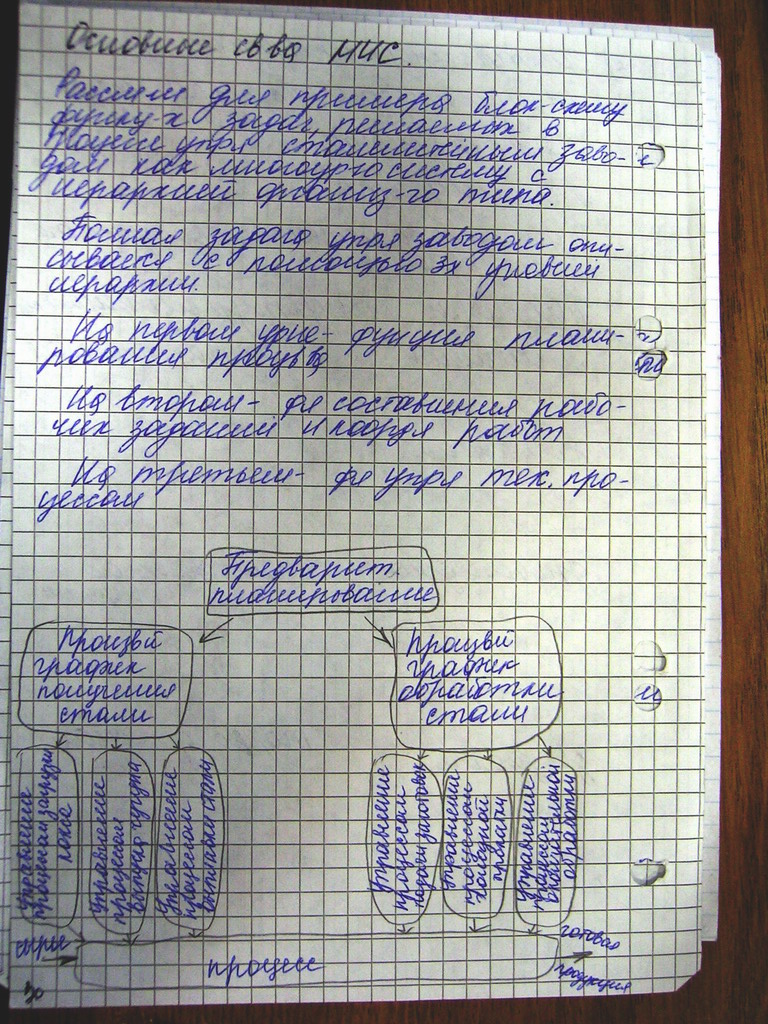 Основные св-ва МИС.
Рассм-м для примеры блок-схему
функц-х задач, решаемых в
процессе упр-я сталилитейным заво-
дом как многоур-ю систему с
иерархией 
типа.
Полная задача упр-я заводом опи-
сывается с помощью 3х уровней
иерархии.
На первом ур-не - функция плани-
рования произв-ва
На втором - ф-я составления рабо-
чих заданий и коорд-я работ
На третьем - ф-я упр-я тех. про-
цессом
Предварит.
планирование
Произв-й
график
получения
стали
Произв-й
график
обработки
стали
Управление
процессом загрузки
кокса
Управление
процессом
выпуска чугуна
Управление
процессом
выплавки стали
Управление
процессом
подачи заготовок
Управление
процессом
холодной
прокатки
Управление
процессом
окончательной
обработки
сырье
процесс
готовая
продукция